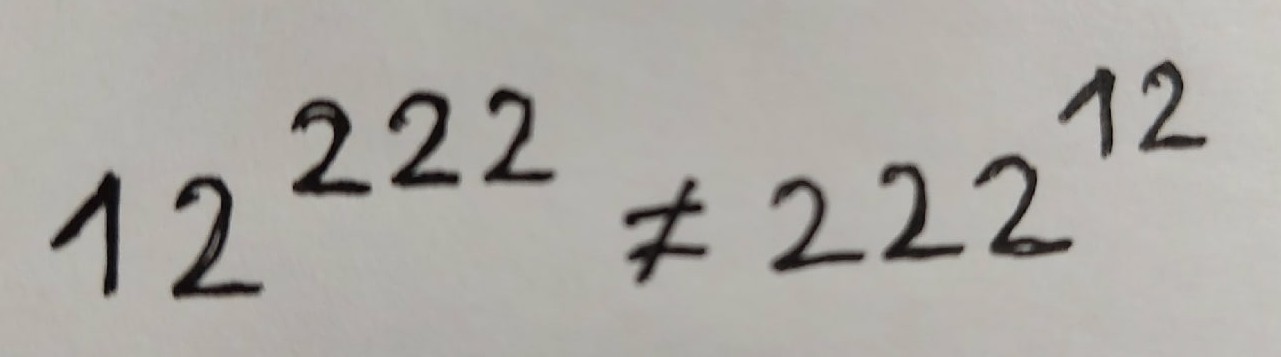 12²²² ≠ 222¹²